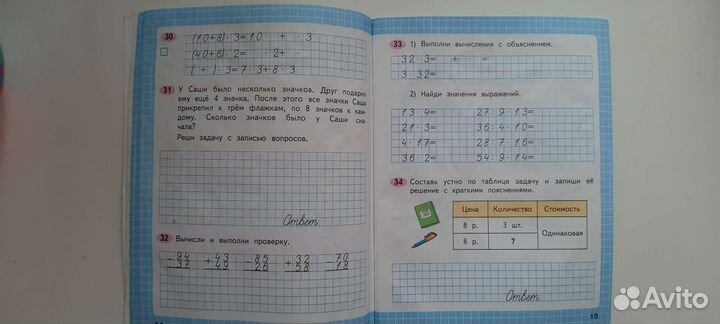 30
(10+8)·3=10· + ·3
(40+6)·2= ·2+
( + )·3=7·3+8·3
31 У Саши было несколько значков. Друг подарил
ему ещё 4 значка. После этого все значки Саша
прикрепил к трём флажкам, по 8 значков к каж-
дому. Сколько значков было у Саши сна-
чала?
Реши задачу с записью вопросов.
Ответ:
32 Вычисли и выполни проверку.
-94 +43 -85 +32 -70
37 49 26 58 18
33 1) Выполни вычисления с объяснением.
32·3= + · =
3·32=
2) Найди значения выражений.
13·4= 27:9·13=
21·3= 36:4·10=
4·17= 28:7·16=
36·2= 54:9·14=
34 Составь устно по таблице задачу и запиши её
решение с краткими пояснениями.
Цена Количество Стоимость
8 р. 3 шт. Одинаковая
6 р. ?
Ответ:
15
Avito